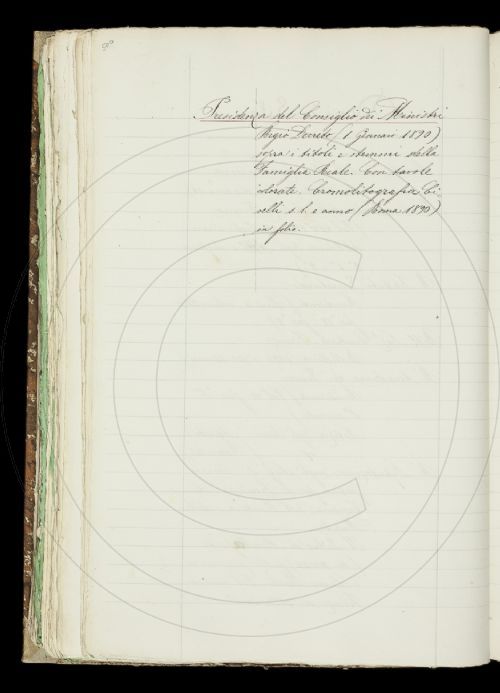 Presidenza del Consiglio dei Ministri
Regio Decreto (1 Gennaio 1890)
sopra i titoli e stemmi della
Famiglia Reale. Con tavole
colorate. Cromolitografia Ci-
velli s. l. e anno (Roma 1890)
in folio.